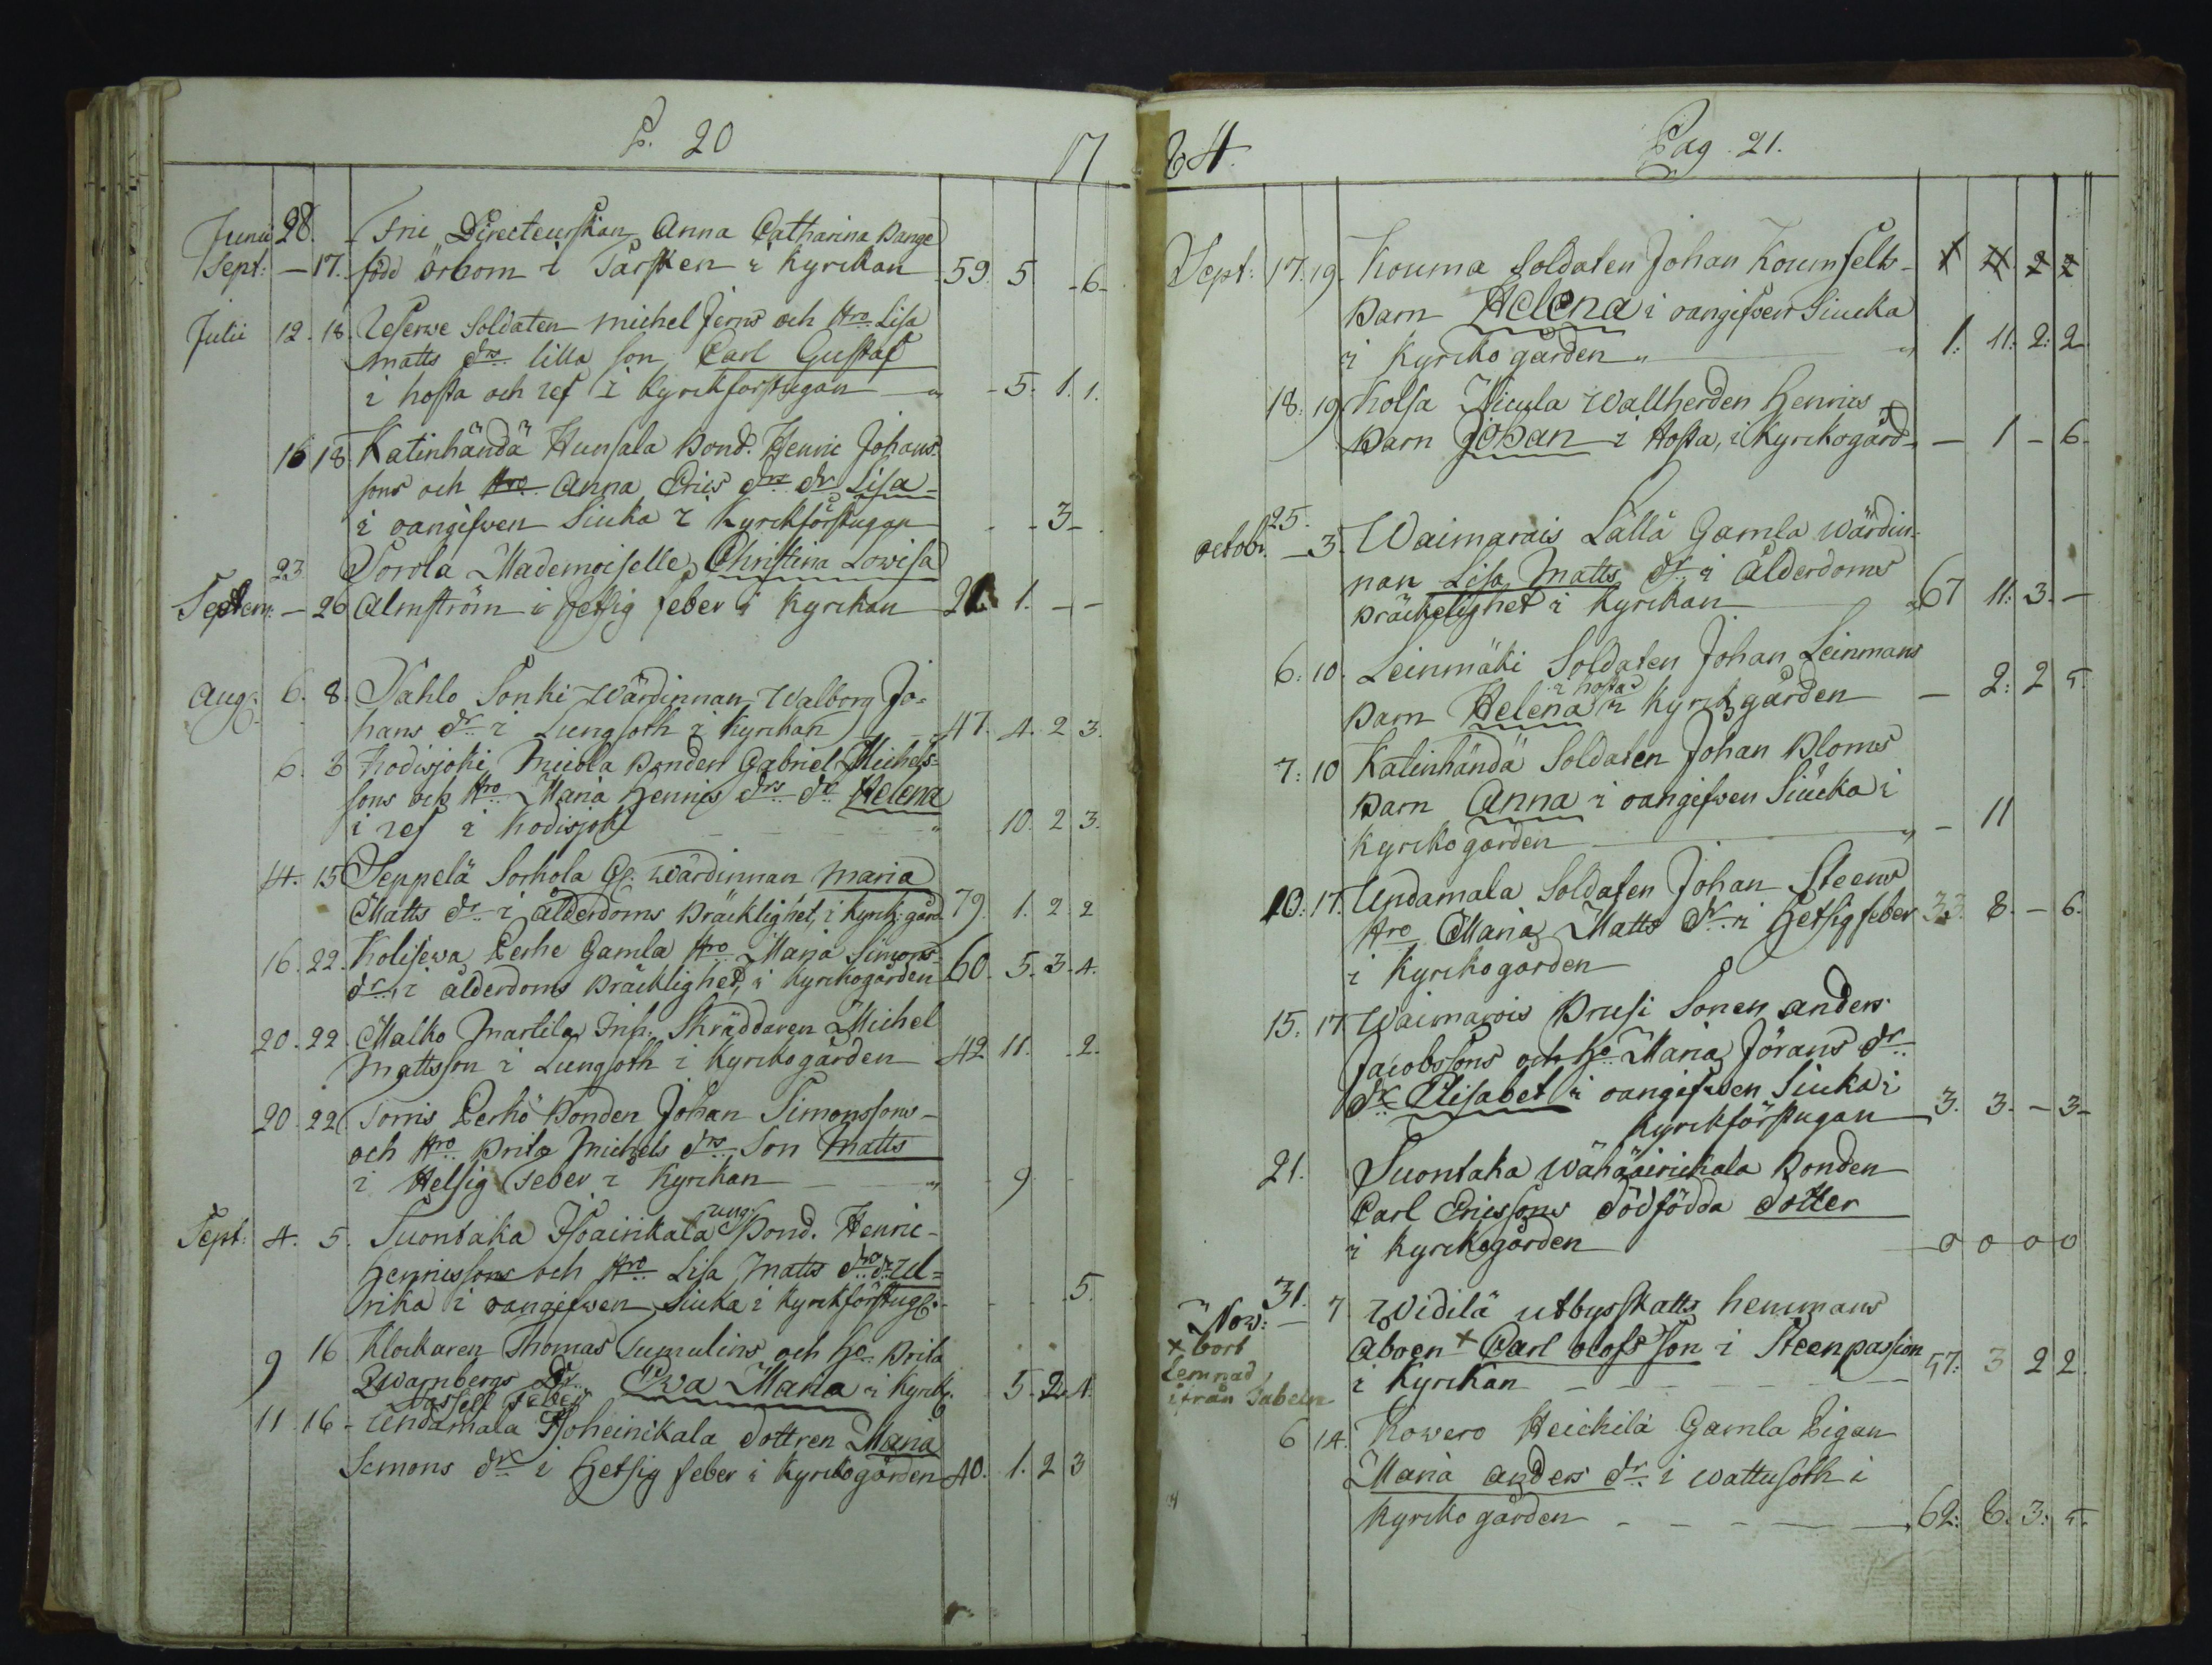 P. 20
17
Junii 28. Fru Directeurskan Anna Catharina Bange
Sept: — 17. född Örbom i Tårsken i Kyrckan 59. 5 - 6 -
Julii 12. 18. Reserve Soldaten Michel Jerns och Hro Lisa
Matts drs lilla son Carl Gustaf
i hosta och ref i Kyrckforstugan „ - 5. 1. 1.
16 18. Katinhändä Hunsala Bond. Henric Johans
sons och Hro Anna Erics drs dr Lisa
i oangifwen Siuka i Kyrckförstugan - - 3 -
23 Sorola Mademoiselle Christina Lowisa
Septem: — 26 Almström i Hettsig feber i Kyrckan 21. 1. - -
Aug: 6. 8. Pahlo Sonki Wärdinnan Walborg Jo-
hans dr i Lungsoth i Kyrckan 47. 4. 2 3.
6. 8 Kodisjoki Micola Bonden Gabriel Michels-
sons och Hro Maria Henrics drs dr Helena
i ref i Kodisjoki „ 10. 2 3.
14. 15 Seppelä Sorhola Gl. Wärdinnan Maria
Matts dr i Ålderdoms Bräcklighet, i Kyrck: gård. 79. 1. 2. 2
16. 22. Kolisewa Perhe Gamla Hro Maria Simons
dr i ålderdoms Bräcklighet, i Kyrckogården 60. 5. 3. 4.
20. 22. Malko Martila Inh. Skräddaren Michel
Mattsson i Lungsoth i Kyrckogården 42 11. - 2.
20. 22 Torris Perhö Bonden Johan Simonssons
och Hro Brita Michels drs Son Matts
i Hetsig Feber i Kyrckan „ - 9
Sept: 4. 5. Suontaka Isoäirikala ung. Bond. Henric
Henricssons och Hro Lisa Matts drs dr Ul=
rika i oangifwen Siuka i Kyrckförstug: - - - 5.
9 16 Klockaren Thomas Tumulins och Ho Brita
Qwarnbergs Dr Ewa Maria i Kyrck. 5. 2. 4.
11. 16 - Undamala Isoheinikala Dottren Maria
Simons dr i Hetsig feber i Kyrckogården 40. 1. 2 3
84.
Pag. 21.
Sept: 17. 19. Kouma Soldaten Johan Koumfelts 1 11 2 2
Barn Helena i oangifwen Siucka
i Kyrckogården „ „ 1: 11: 2: 2
18: 19 Kolsa Nicula Wallherden Henrics
Barn Johan i Hosta, i Kyrckogård — 1 - 6.
25.
October. — 3. Waimarais Lällä Gamla Wärdin-
nan Lisa Matts dr i Ålderdoms
Bräckelighet i Kyrckan 67 11: 3. —
6: 10. Leinmäki Soldaten Johan Leinmans
i hosta
Barn Helena i Kyrckgården — 2: 2 5.
7: 10 Katinhändä Soldaten Johan Bloms
Barn Anna i oangifwen Siucka i
Kyrckogården „ - 11
10: 17. Undamala Soldaten Johan Steens
Hro Maria Matts dr i Hetsig feber 33 8. - 6.
i Kyrckogården
15: 17 Waimarois Prusi Sonen Anders
Jacobssons och Ho Maria Jörans dr
dr Elisabet i oangifwen Siuka i
Kyrckförstugan 3. 3. - 3 -
21. Suontaka Wähääirickala Bonden
Carl Ericssons dödfödda Dotter
i Kyrckogården - 0 0 0 0
31.
Now: — 7 Widilä utbysskatts hemmans
× bort
åboen × Carl Olofs Son i Steenpassion
lemnad
i Kyrckan 57: 3 2 2
ifrån Tabeln
6 14. Kowero Heickilä Gamla Pigan
Maria Anders dr i Wattusoth i
Kyrckogården 62: 8. 3: 5.